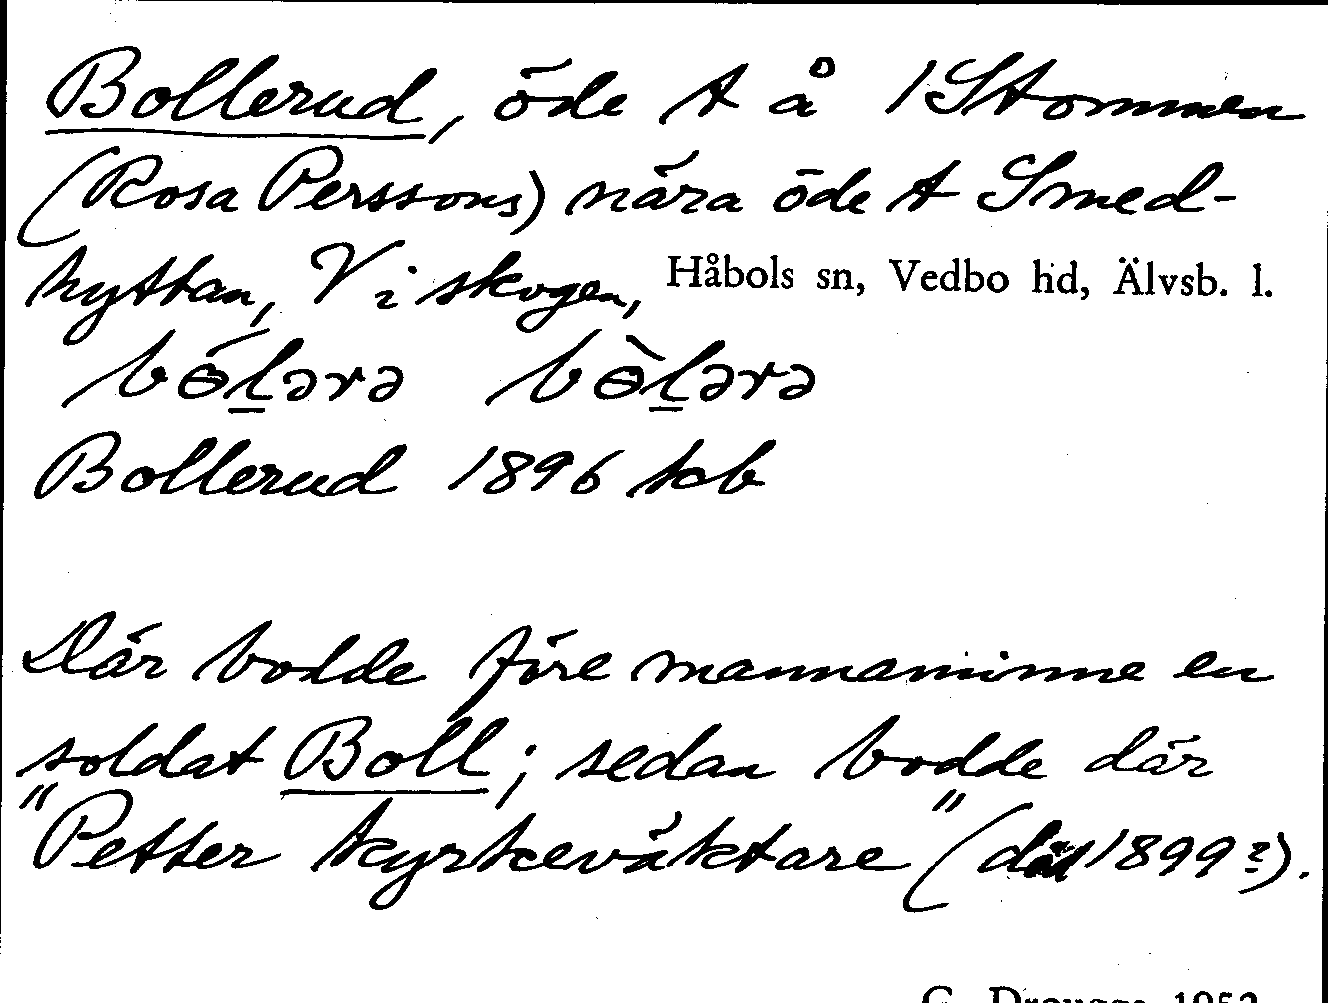 Bollerud, öde t å 1 Stommen
(Rosa Perssons) nära öde t Smed-
hyttan, V i skogen, Håbols sn, Vedbo hd, Älvsb. l.
bɵ́l̲ərə bɵ̀l̲ərə
Bollerud 1896 kb
Där bodde före mannaminne en
soldat Boll; sedan bodde där
"Petter kyrkeväktare" (död 1899?).